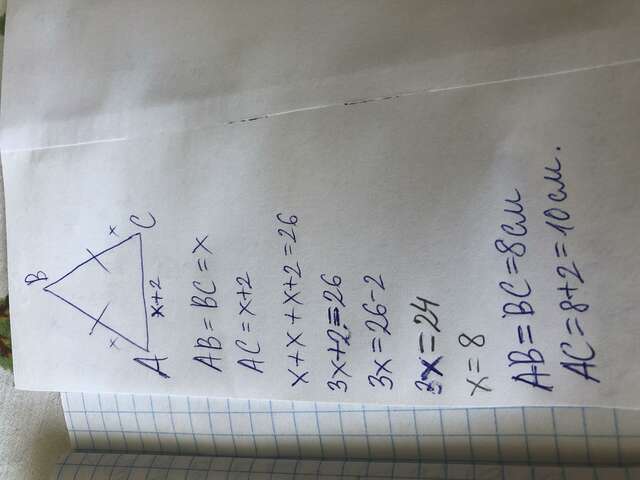 B
x
x
A
C
x+2
AB=BC=x
AC=x+2
x+x+x+2=26
3x+2=26
3x=26-2
3x=24
x=8
AB=BC=8см
AC=8+2=10см.